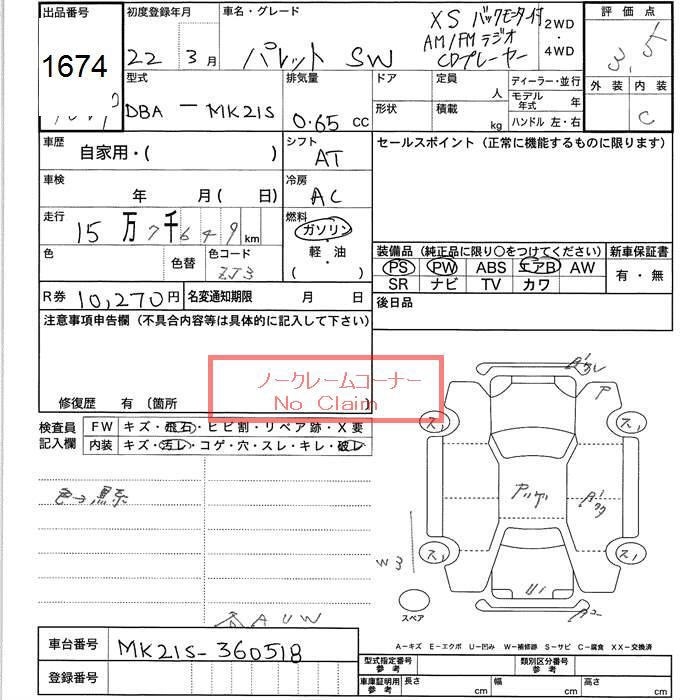 出品番号
1674
初度登録年月
22 3月
車名・グレード
パレット SW
XS バックモニター付
AM/FMラジオ
CDプレーヤー
2WD
・
4WD
評価点
3.5
外装 内装
C
型式
DBA - MK21S
排気量
0.65 cc
ドア
形状
定員
人
積載
kg
ディーラー・並行
モデル年式 年
ハンドル 左・右
車歴
自家用・( )
シフト
AT
セールスポイント(正常に機能するものに限ります)
車検
年 月( 日)
冷房
AC
走行
15万7千649km
燃料
ガソリン
・
軽・油
( )
色
色替
色コード
ZJ3
装備品(純正品に限り○をつけてください)
PS PW ABS エアB AW
SR ナビ TV カワ
新車保証書
有・無
R券 10,270円
名変通知期限 月 日
後日品
注意事項申告欄(不具合内容等は具体的に記入して下さい)
ノークレームコーナー
No Claim
修復歴 有〔箇所 〕
検査員記入欄
FW キズ・飛石・ヒビ割・リペア跡・X要
内装 キズ・汚レ・コゲ・穴・スレ・キレ・破レ
色→黒系
AUW
W3
スペア
A-キズ E-エクボ U-凹み W-補修跡 S-サビ C-腐食 XX-交換済
車台番号
MK21S-360518
登録番号
型式指定番号
参考
類別区分番号
参考
車庫証明用
参考
長さ cm
幅 cm
高さ cm